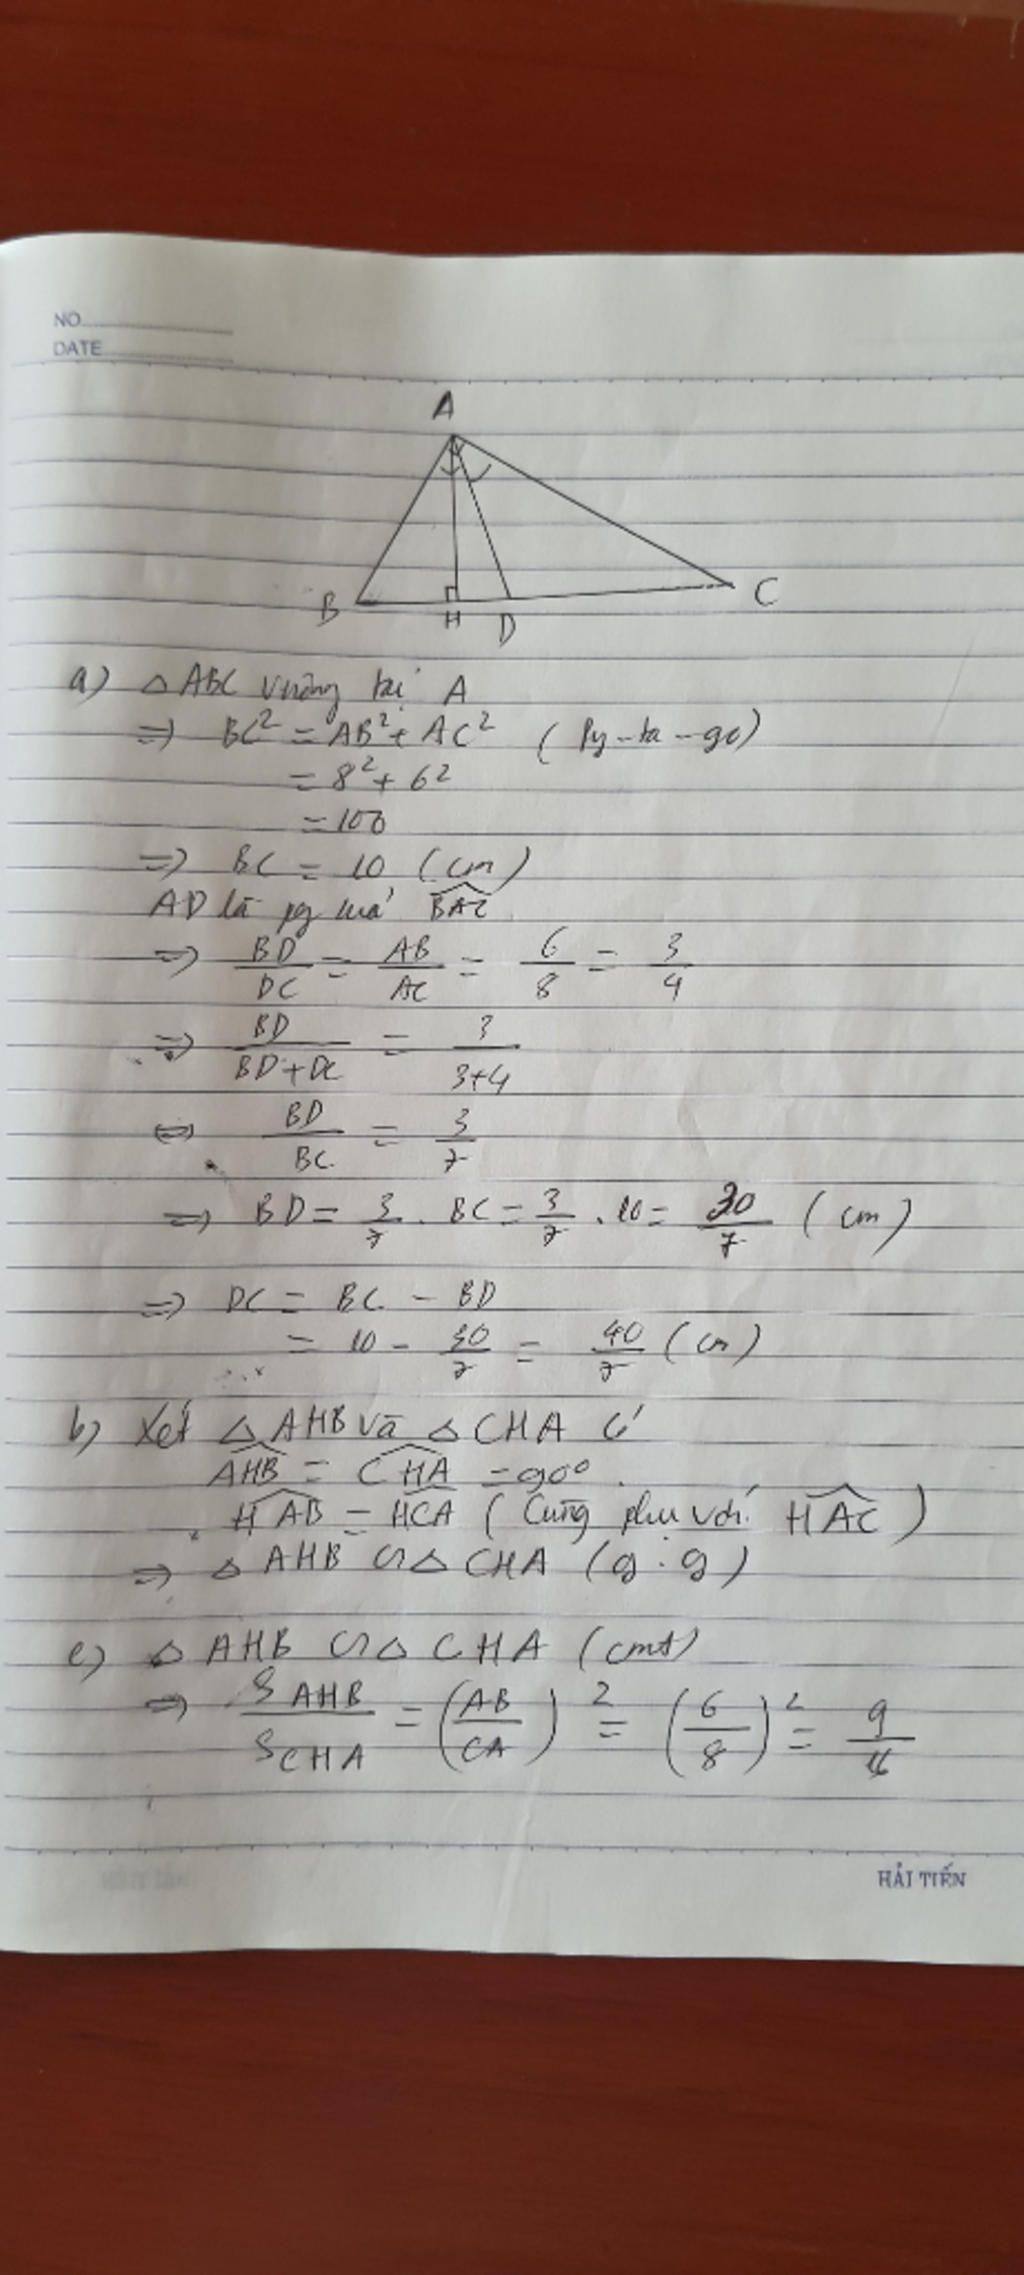 NO
DATE
A
B
H
D
C
a) △ABC vuông tại A
=> BC² = AB² + AC² (Py-ta-go)
= 8² + 6²
= 100
=> BC = 10 (cm)
AD là pg của BAC
=> BD/DC = AB/AC = 6/8 = 3/4
=> BD/BD+DC = 3/3+4
<=> BD/BC = 3/7
=> BD = 3/7 . BC = 3/7 . 10 = 30/7 (cm)
=> DC = BC - BD
= 10 - 30/7 = 40/7 (cm)
b) Xét △AHB và △CHA có
AHB = CHA = 90°
HAB = HCA (Cùng phụ với HAC)
=> △AHB ∽ △CHA (g.g)
c) △AHB ∽ △CHA (cmt)
=> S AHB/S CHA = (AB/CA)² = (6/8)² = 9/16
HẢI TIẾN